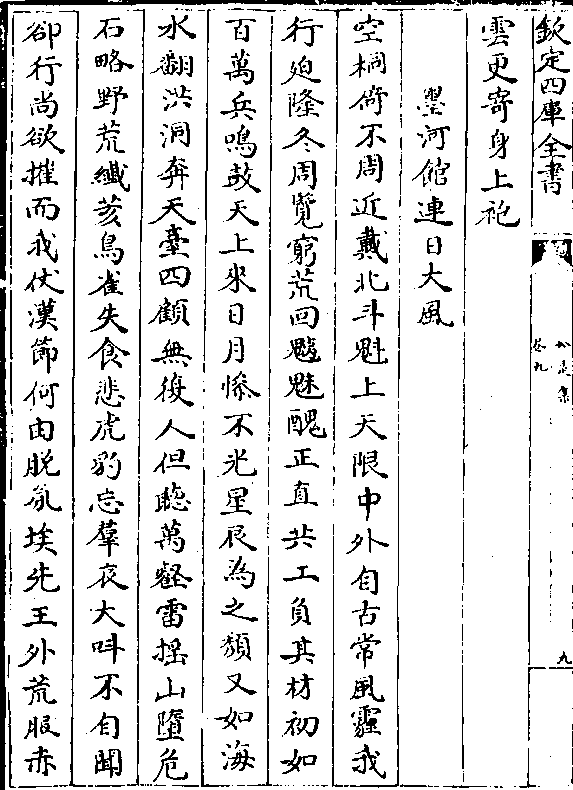 欽定四庫全書
公是集
卷九
九
雲更寄身上袍
墨河館連日大風
空桐倚不周近戴北斗魁上天限中外自古常風霾我
行迨隆冬周覽窮荒回魑魅醜正直共工負其材初如
百萬兵鳴鼓天上來日月慘不光星辰為之頹又如海
水翻洪洞奔天臺四顧無復人但聽萬壑雷搖山墮危
石略野荒纖荄鳥雀失食悲虎豹忘羣哀大叫不自聞
卻行尚欲摧而我仗漢節何由脫氛埃先王外荒服赤